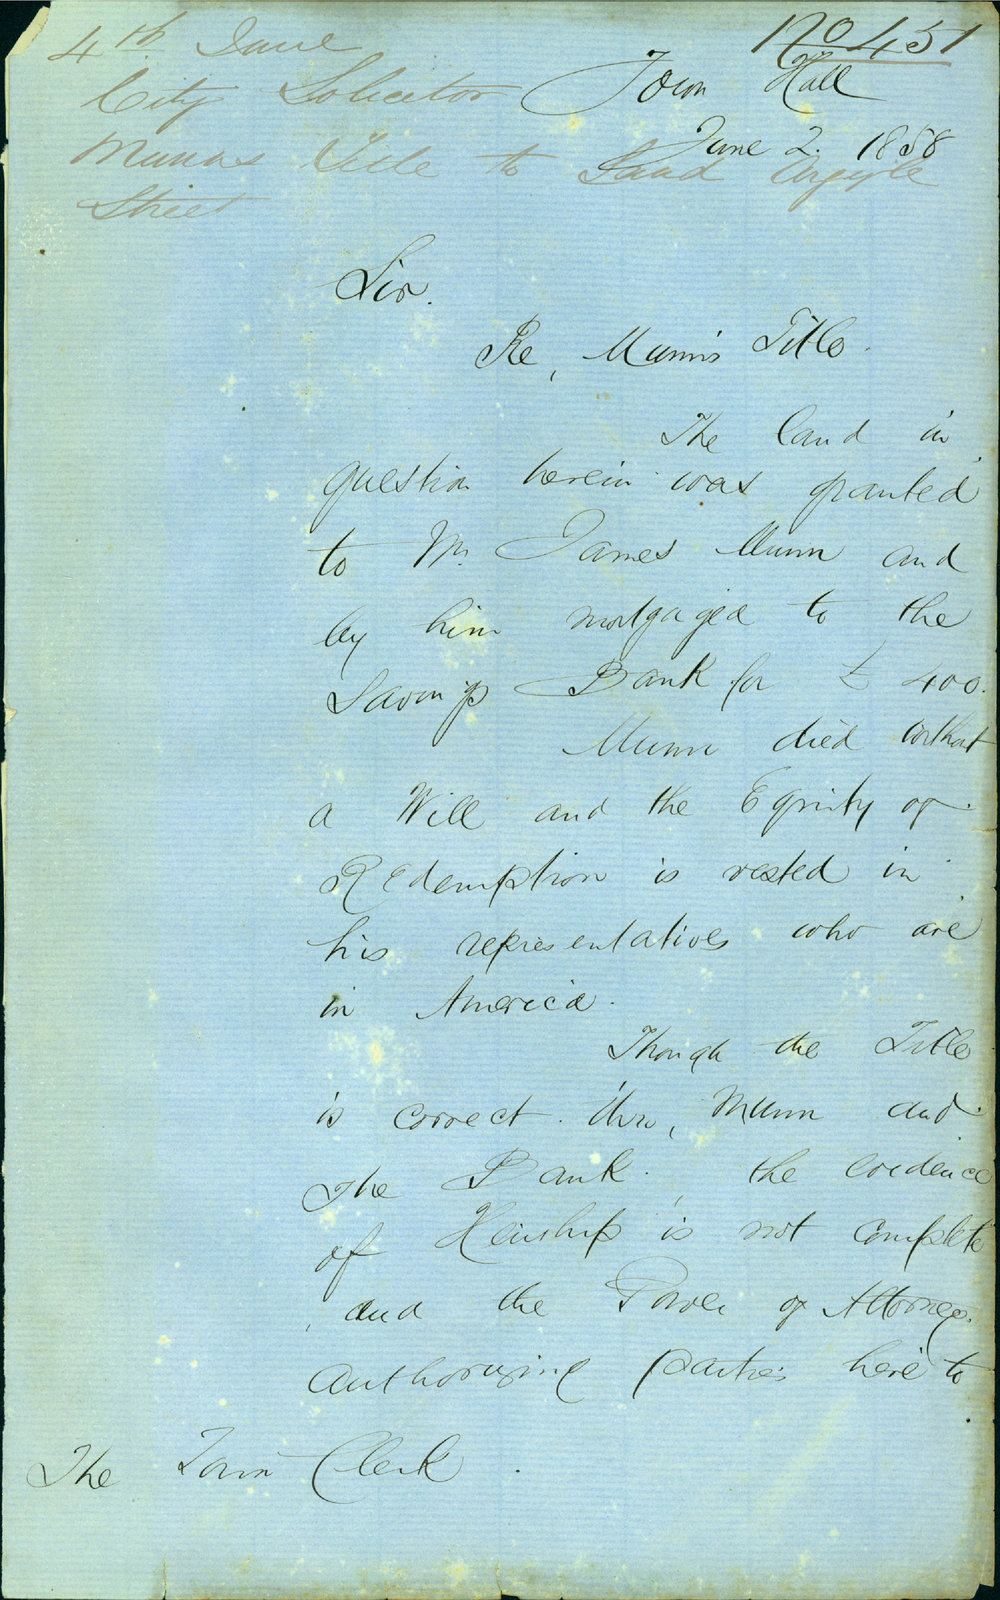 No 451
4th June
City Solicitor
Munns Title to Land Argyle
Street
Town Hall
June 2. 1858
Sir.
Re, Munn's Title.
The land in
question herein was granted
to Mr. James Munn and
by him mortgaged to the
Savings Bank for £ 400.
Munn died without
a Will and the Equity of
Redemption is vested in
his representatives who are
in America.
Though the Title
is correct thro, Munn and
the Bank, the evidence
of Heirship is not complete
, and the Power of Attorney
authorizing parties here to
The Town Clerk.